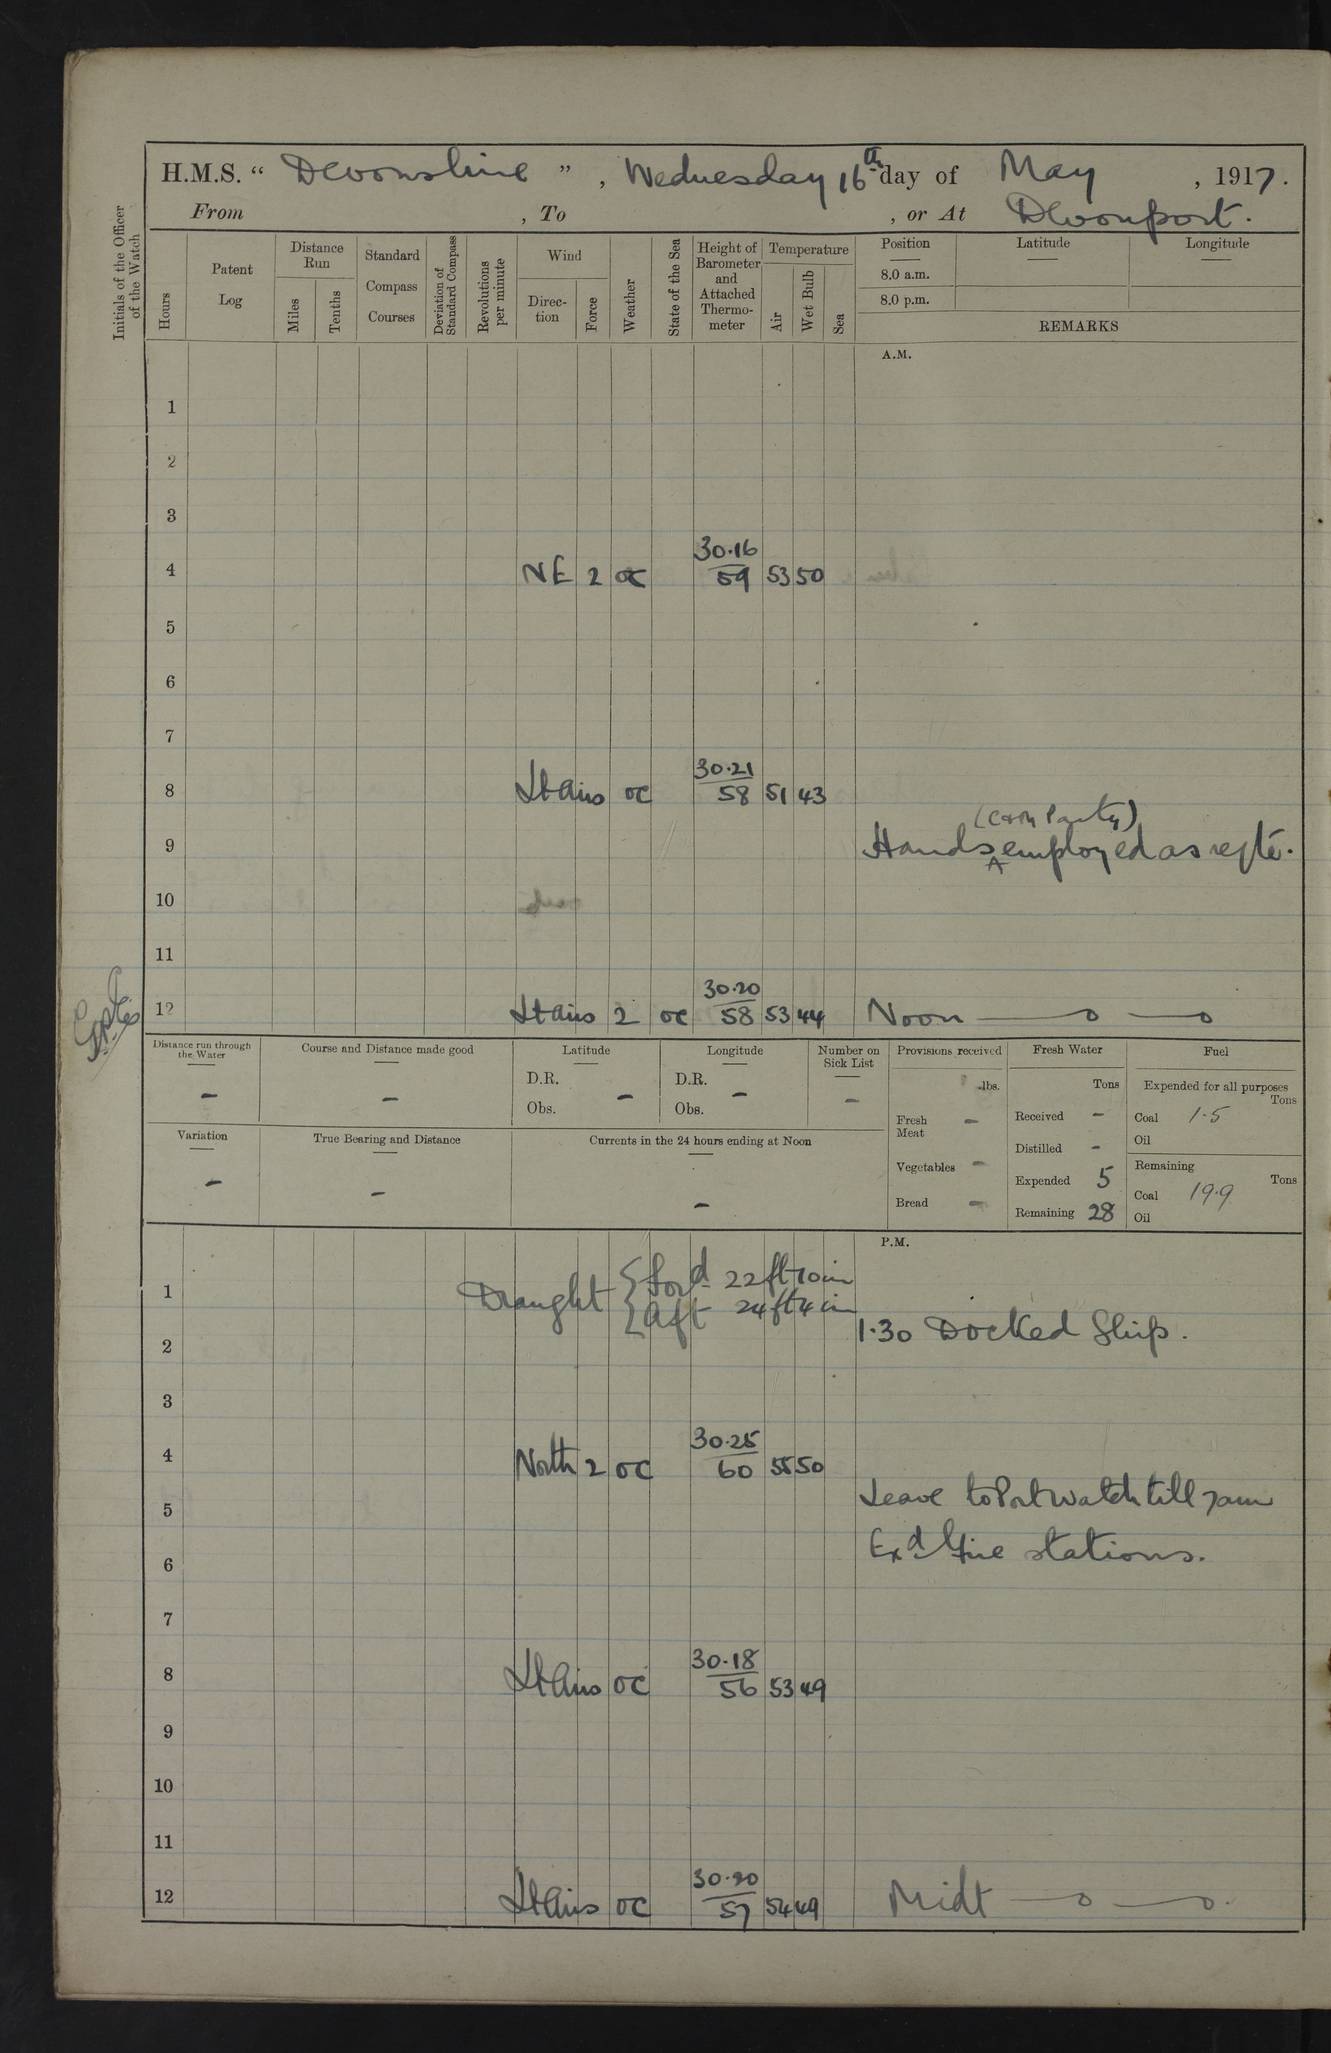 H.M.S. “ Devonshire ” , Wednesday 16th day of May , 1917.
From , To , or At Devonport.
Initials of the Officer of the Watch
Hours
Patent Log
Distance Run
Miles
Tenths
Standard Compass Courses
Deviation of Standard Compass
Revolutions per minute
Wind
Direc-tion
Force
Weather
State of the Sea
Height of Barometer and Attached Thermo-meter
Temperature
Air
Wet Bulb
Sea
Position Latitude Longitude
8.0 a.m.
8.0 p.m.
REMARKS
A.M.
1
2
3
30.16
4 NE 2 oc 59 53 50
5
6
7
30.21
8 Lt airs oc 58 51 43
(Com Party)
9 Hands employed as reqte.
10
11
30.20
12 Lt airs 2 oc 58 53 44 Noon —o —o
Distance run through the Water
-
Course and Distance made good
-
Latitude
D.R.
Obs. -
Longitude
D.R.
Obs. -
Number on Sick List
-
Provisions received
lbs.
Fresh Meat -
Vegetables -
Bread -
Fresh Water
Tons
Received -
Distilled -
Expended 5
Remaining 28
Fuel
Expended for all purposes
Tons
Coal 1.5
Oil
Remaining
Tons
Coal 19.9
Oil
Variation
-
True Bearing and Distance
-
Currents in the 24 hours ending at Noon
-
P.M.
1 Draught { ford 22 ft 10 in
{ aft 24 ft 4 in
1.30 Docked Ship.
2
3
30.25
4 North 2 oc 60 55 50
Leave to Port Watch till 7am
5
Exd fire stations.
6
7
30.18
8 Lt airs oc 56 53 49
9
10
11
30.20
12 Lt airs oc 57 54 49 Midt —o —o.